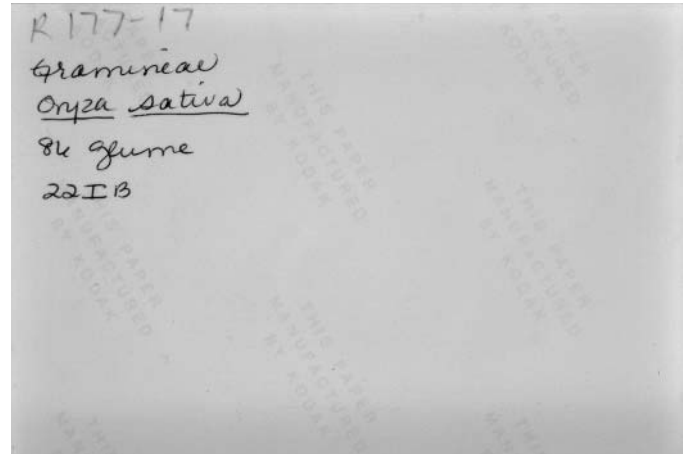 R 177-17
Gramineae
Oryza sativa
84 glume
22IB
THIS PAPER
MANUFACTURED
BY KODAK